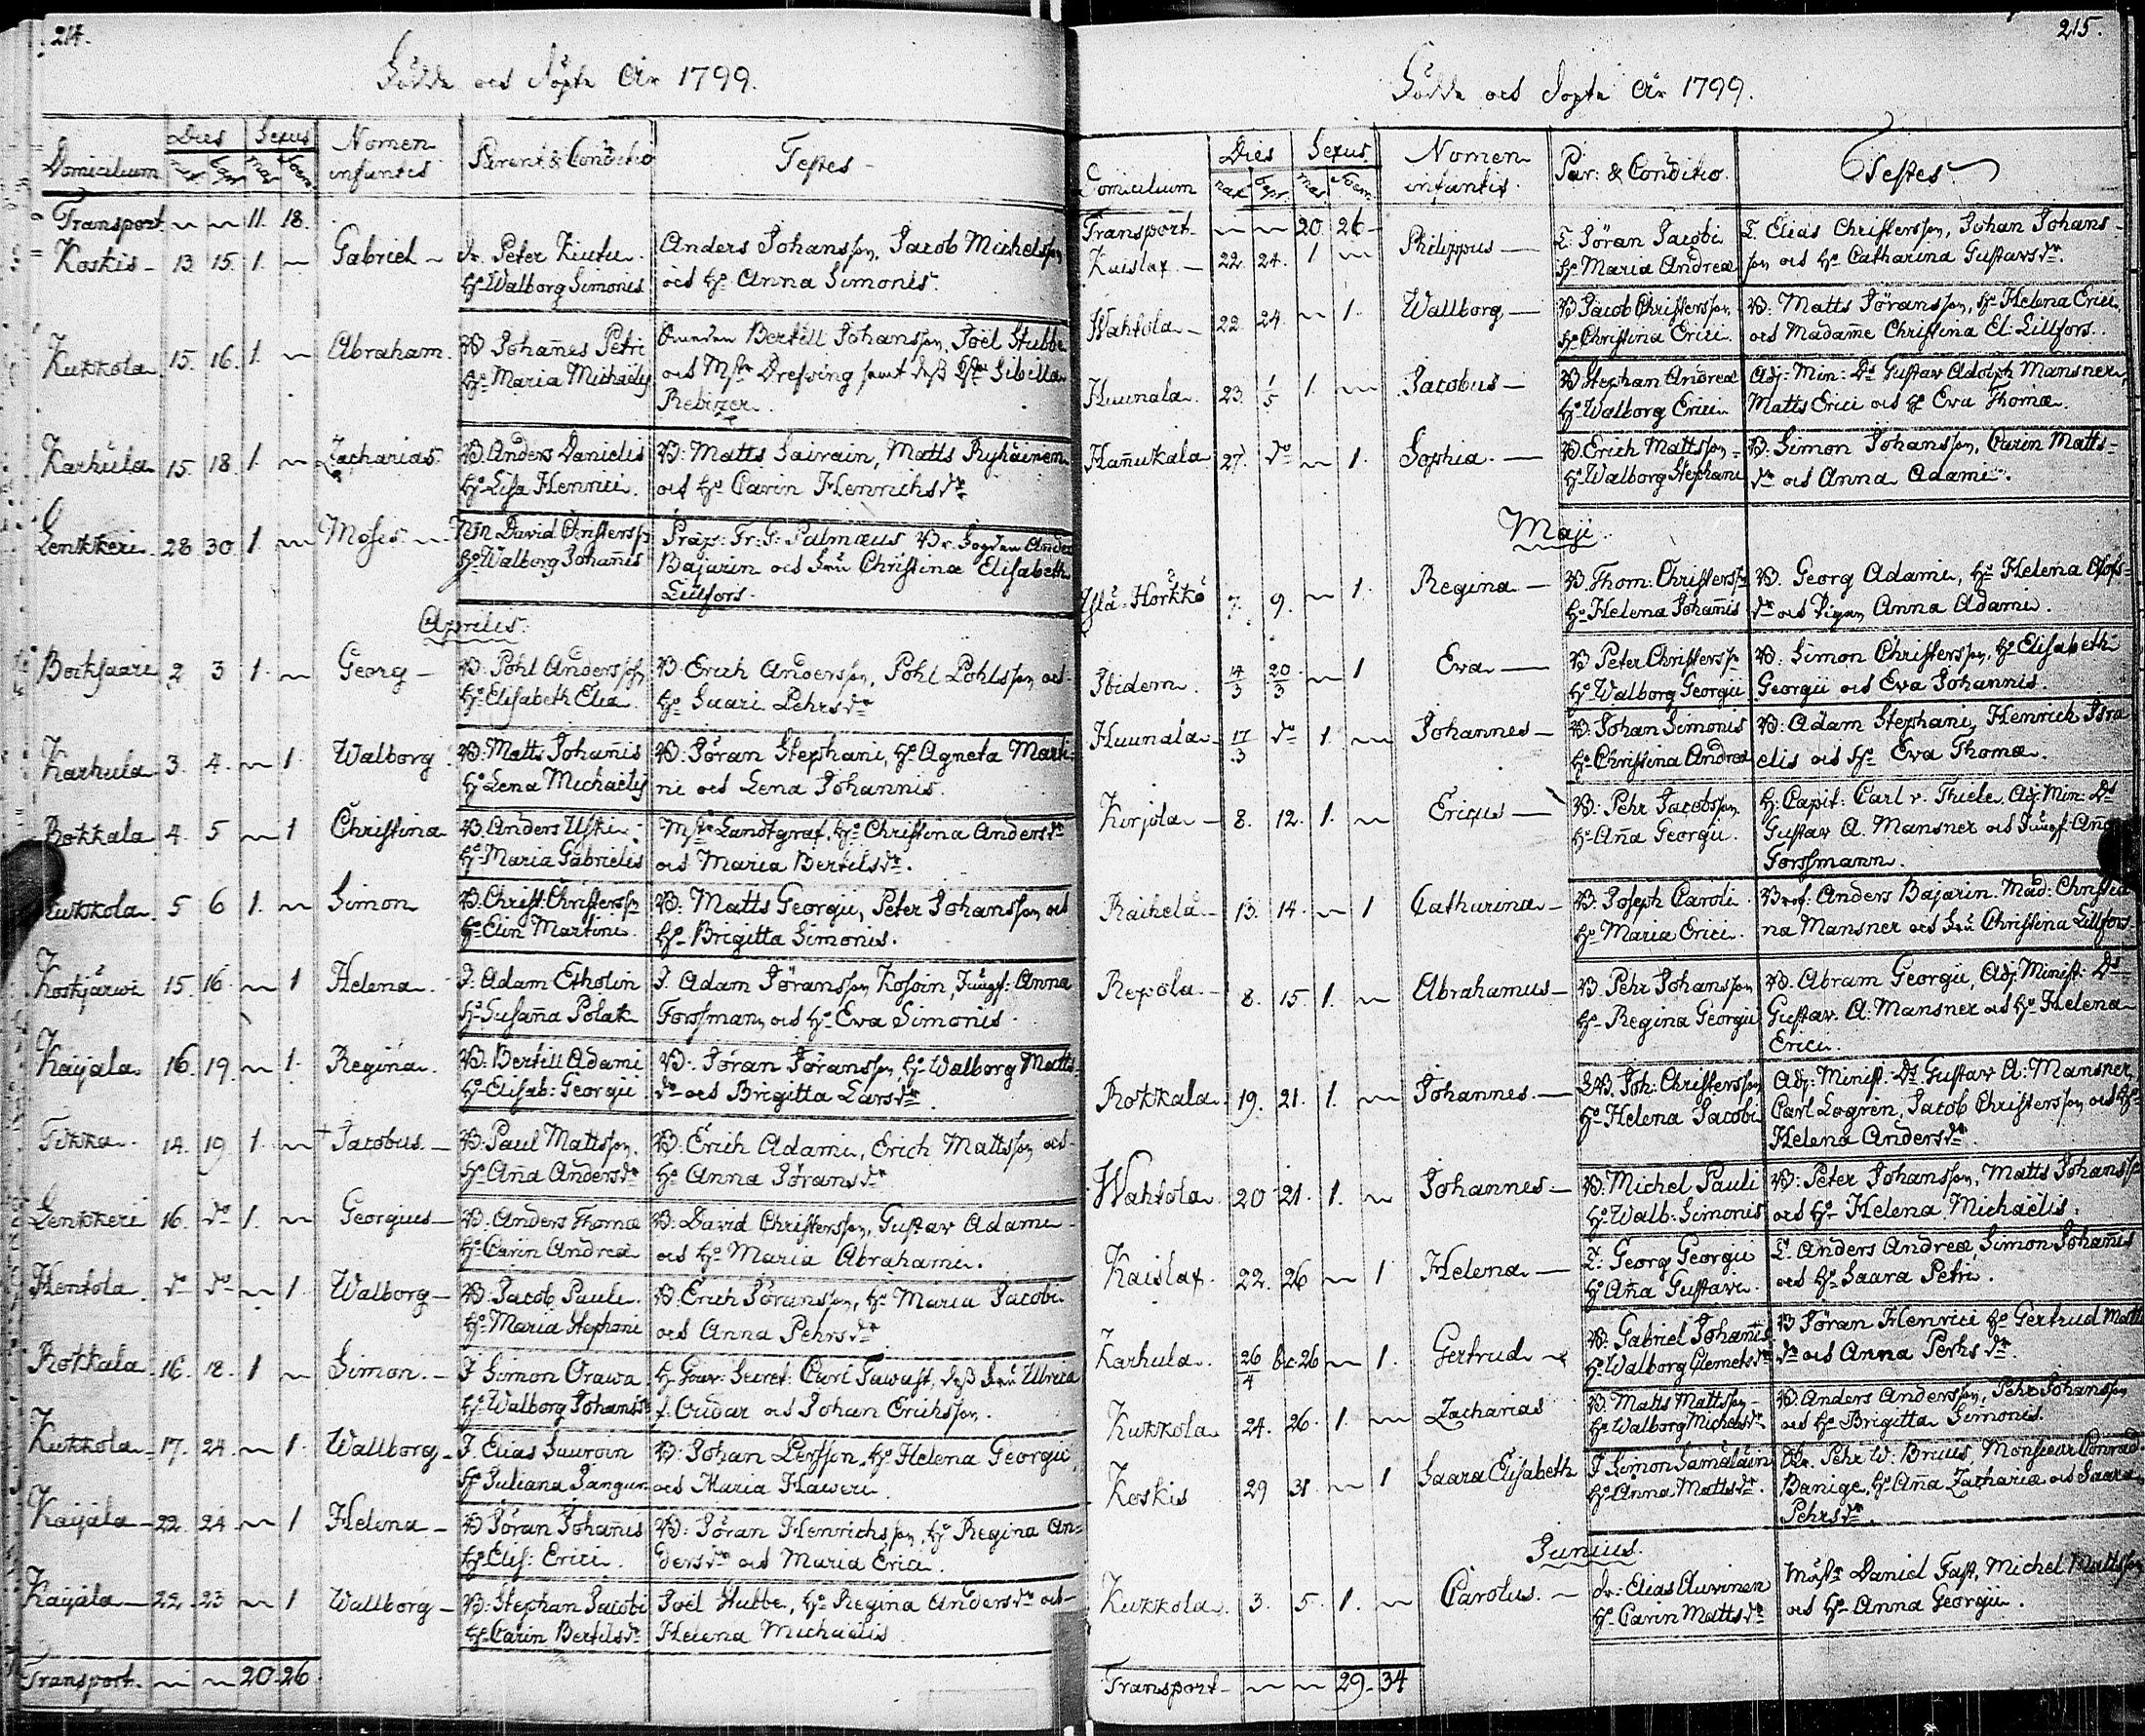 214.
Födde och Döpte År 1799.
Domicilium Dies Sexus Nomen infantis Parent. & Conditio Testes
nat. bapt. mas. foem.
Transport 11. 18.
Koskis 13. 15. 1. Gabriel Dr. Peter Kiutu. Anders Johansson, Jacob Michelsson
Hu Walborg Simonis och Hu Anna Simonis.
Kukkola 15. 16. 1. Abraham. B. Johannes Petri Bertill Johansson, Joël Stubbe
Hu Maria Michaelis och Mstr Dressing samt dess Sibilla
Rebizer.
Karhula 15. 18. 1. Zacharias. B. Anders Danielis B. Matts Sairain, Matts Ryhäinen
Hu Lisa Henrici. och Hu Carin Henrichsdr
Lenkkeri 28 30. 1. Moses David Christerss. Præp. Fr. G. Palmæus Br. Fogden Anders
Hu Walborg Johannis Bajarin och Fru Christina Elisabeth
Lillfors.
Aprilis.
Bocksaari 2 3 1. Georg B. Pohl Andersson B. Erich Andersson, Pohl Pohlsson och
Hu Elisabeth Eliæ. Hu Saari Pehrsdr
Karhula 3. 4. 1. Walborg B. Matts Johannis B. Jöran Stephani, Hu Agneta Marti-
Hu Lena Michaelis ni och Lena Johannis.
Rokkala 4. 5 1 Christina B. Anders Uski Mstr Landtgraf, Hu Christina Andersdr
Hu Maria Gabrielis och Maria Bertelsdr.
Kukkola. 5 6 1. Simon B. Christ. Christerss. B. Matts Georgii, Peter Johansson och
Hu Elin Martini. Hu Brigitta Simonis.
Koskjärwi 15. 16. 1 Helena. J. Adam Etholin J. Adam Jöransson Kosoin, Jungf. Anna
Hu Susanna Polak Forssman, och Hu Eva Simonis.
Kaijala 16. 19. 1. Regina. B. Bertill Adami B. Jöran Jöransson Hu Walborg Matts-
Hu Elisab: Georgii dr och Brigitta Larsdr.
Tikka. 14. 19 1. + Jacobus. B. Paul Mattsson. B. Erich Adami, Erich Mattsson och
Hu Anna Andersdr Hu Anna Jöransdr
Lenkkeri 16. do 1. Georgius B. Anders Thomæ B. David Christersson, Gustav Adami
Hu Carin Andreæ och Hu Maria Abrahami.
Hentola. do do 1. Walborg B. Jacob Pauli. B. Erich Jöransson, Hu Maria Jacobi
Hu Maria Stephani och Anna Pehrsdr
Rokkala 16. 18. 1 Simon. J Simon Orawa H. Gouv. Secret. Carl Tawast, dess Fru Ulrica
Hu Walborg Johansdr f. Cudar och Johan Erichsson.
Kukkola 17. 24. 1. Wallborg J. Elias Sauroin B. Johan Persson. Hu Helena Georgii
Hu Juliana Pangun och Maria Haweri
Kaijala 22. 24. 1 Helena B Jöran Johannis B. Jöran Henrichsson, Hu Regina An-
Hu Elis: Erici. dersdr och Maria Erici.
Kaijala 22. 23 1 Wallborg B. Stephan Jacobi Joël Stubbe, Hu Regina Andersdr och
Hu Carin Bertelsdr Helena Michaelis
Transport. 20 26.
215.
Födde och Döpte År 1799.
Domicilium Dies Sexus. Nomen infantis. Par: & Conditio. Testes.
nat. bapt. mas. foem.
Transport 20. 26
Kaislax. 22. 24. 1 Philippus T. Jöran Jacobi T. Elias Christersson, Johan Johans-
Hu Maria Andreæ son och Hu Catharina Gustavsdr.
Wahtola 22. 24. 1. Wallborg B Jacob Christersson, B. Matts Jöransson, Hu Helena Erici
Hu Christina Erici. och Madame Christina El. Lillfors.
Huunala. 23. 1/5 1. Jacobus B Stephan Andreæ Adj: Min: Ds Gustav Adolph Mansner,
Hu Walborg Erici Matts Erici och Hu Eva Thomæ.
Hannukala 27. do 1. Sophia. B. Erich Mattsson B. Simon Johansson, Carin Matts-
Hu Walborg Stephani dr och Anna Adami.
Maji.
Yllä-Hörkkö 7. 9. 1. Regina B Thom: Christersson B. Georg Adami, Hu Helena Olofs-
Hu Helena Johannis dr och Pigan Anna Adami.
Ibidem. 14/3 20/3 1 Eva B Peter Christerss. B. Simon Christersson, Hu Elisabeth
Hu Walborg Georgii Georgii och Eva Johannis.
Huunala 17/3 do 1. Johannes B. Johan Simonis B. Adam Stephani, Henrich Isra-
Hu Christina Andreæ elis och Hu Eva Thomæ.
Kirjola 8. 12. 1. Ericus B. Pehr Jacobsson H. Capit: Carl v. Thiele, Adj. Min. Ds
Hu Anna Georgii. Gustav A. Mansner och Jungf. Anna
Forssmann.
Raikela 13. 14. 1 Catharina B. Joseph Caroli. Anders Bajarin. Mad: Christi-
Hu Maria Erici. na Mansner och Fru Christina Lillfors.
Repola. 8. 15. 1. Abrahamus B. Pehr Johansson B. Abram Georgii, Adj. Minist. Ds
Hu Regina Georgii Gustav. A. Mansner och Hu Helena
Erici.
Rokkala. 19. 21. 1. Johannes. B. Joh. Christersson Adj: Minist. Ds Gustav A: Mansner,
Hu Helena Jacobi Carl Logren, Jacob Christersson och Hu
Helena Andersdr.
Wahtola. 20 21. 1. Johannes B. Michel Pauli B. Peter Johansson, Matts Johansson
Hu Walb. Simonis och Hu Helena Michaëlis.
Kaislax. 22. 26 1 Helena T. Georg Georgii T. Anders Andreæ, Simon Johannis
Hu Anna Gustavi. och Hu Saara Petri.
Karhula. 26/4 26 1. Gertrud B. Gabriel Johannis B Jöran Henrici Hu Gertrud Matts
Hu Walborg Clemetsdr dr och Anna Pehrsdr.
Kukkola 24. 26. 1. Zacharias B. Matts Mattsson B. Anders Andersson, Pehr Johansson
Hu Walborg Michelsdr och Hu Brigitta Simonis.
Koskis 29 31 1 Saara Elisabeth J Simon Samulain Pehr W. Bruus, Monsieur Conrad
Hu Anna Mattsdr. Banige, Hu Anna Zachariæ och Saara
Pehrsdr.
Junius.
Kukkola 3. 5. 1. Carolus. Dr. Elias Auvinen Mäst. Daniel Fast, Michel Mattsson
Hu Carin Mattsdr och Hu Anna Georgii.
Transport 29. 34